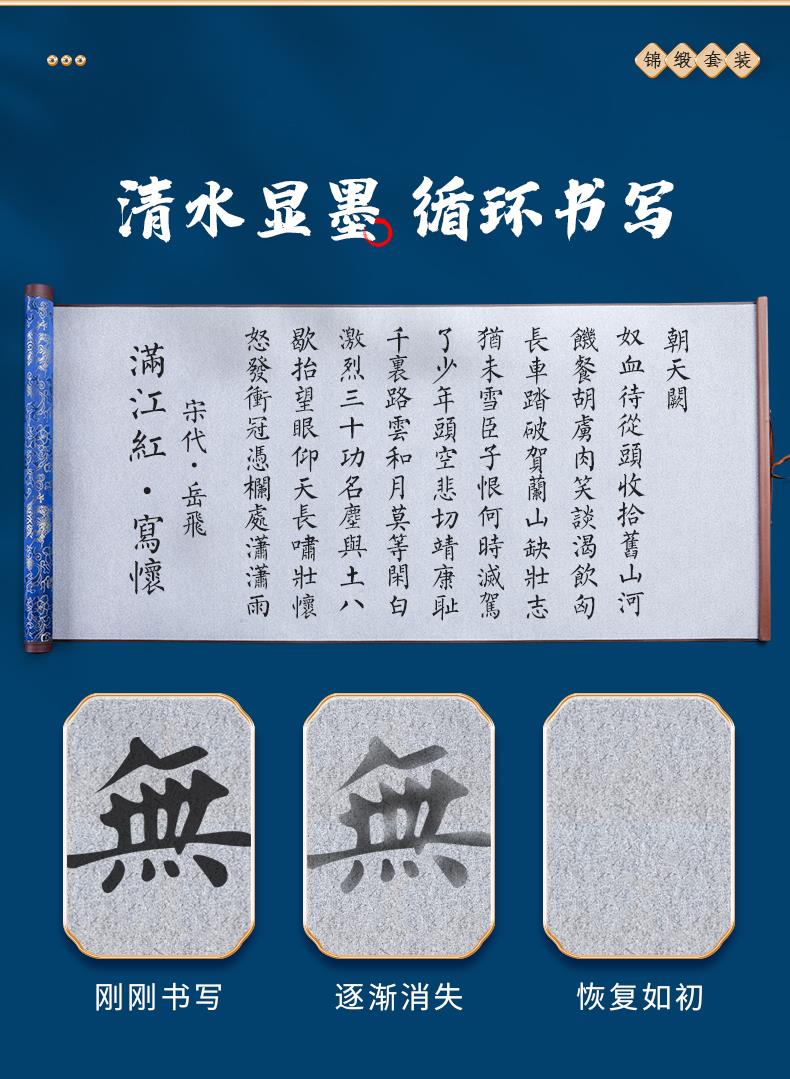 锦缎套装
清水显墨 循环书写
滿江紅·寫懷
宋代·岳飛
怒發衝冠憑欄處瀟瀟雨
歇抬望眼仰天長嘯壯懷
激烈三十功名塵與土八
千裏路雲和月莫等閑白
了少年頭空悲切靖康耻
猶未雪臣子恨何時滅駕
長車踏破賀蘭山缺壯志
饑餐胡虜肉笑談渴飲匈
奴血待從頭收拾舊山河
朝天闕
無
無
刚刚书写
逐渐消失
恢复如初